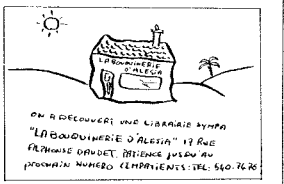 LA BOUQUINERIE
D'ALESIA
ON A DECOUVERT UNE LIBRAIRIE SYMPA
"LA BOUQUINERIE D'ALESIA" 17 RUE
ALPHONSE DAUDET. PATIENCE JUSQU'AU
PROCHAIN NUMERO (IMPATIENTS: TEL: 540.76.76